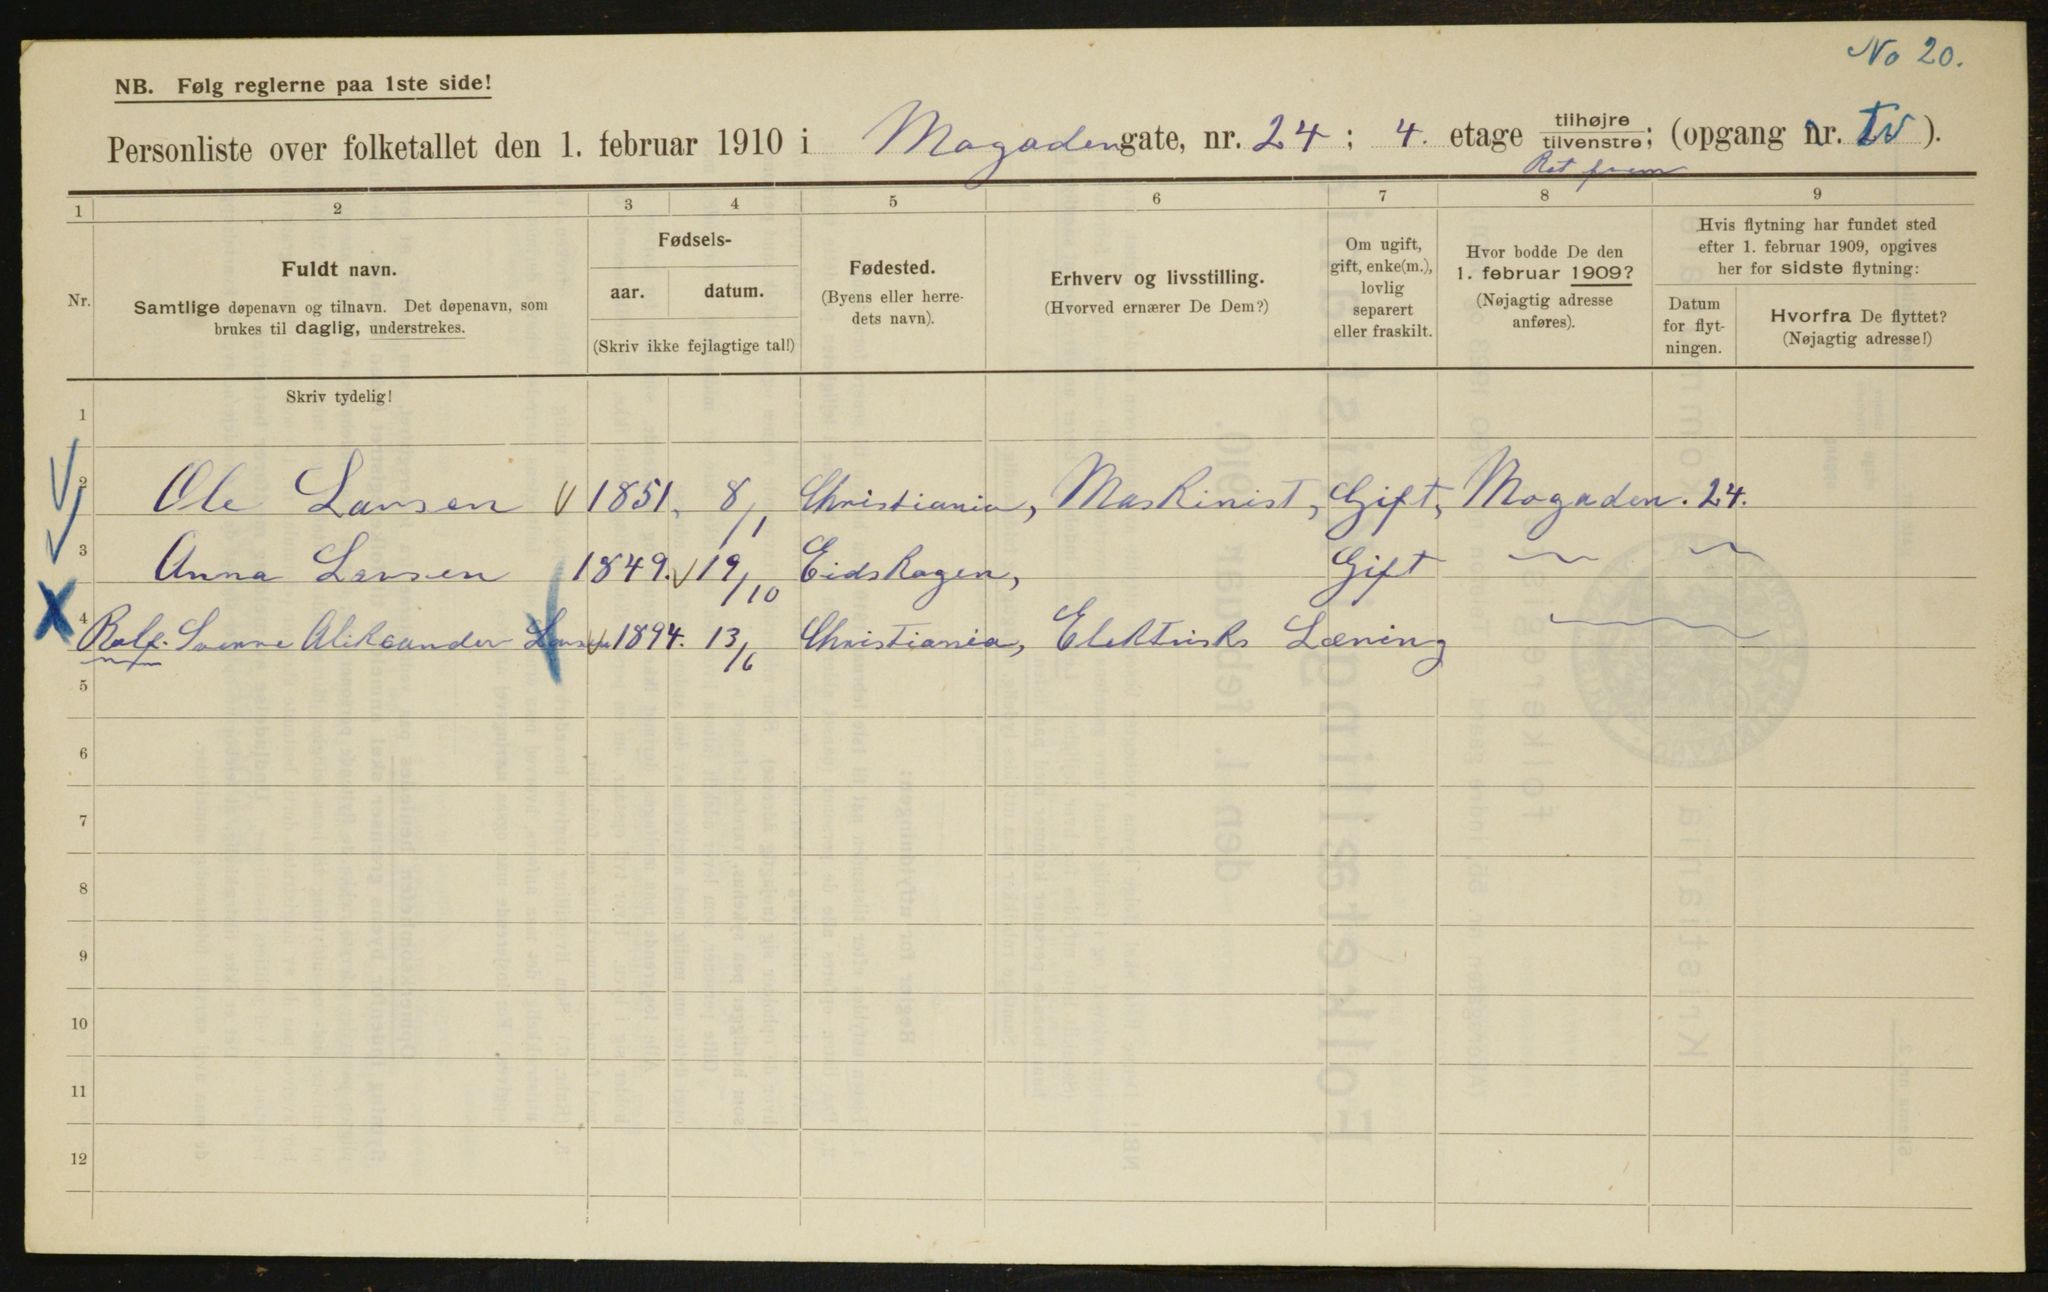 No 20.
NB. Følg reglerne paa 1ste side!
Personliste over folketallet den 1. februar 1910 i Mogadengate, nr. 24; 4. etage tilhøjre tilvenstre; (opgang nr. tv).
Ret frem
1 2 3 4 5 6 7 8 9
Nr.
Fuldt navn.
Samtlige døpenavn og tilnavn. Det døpenavn, som
brukes til daglig, understrekes.
Fødsels-
aar. datum.
(Skriv ikke fejlagtige tal!)
Fødested.
(Byens eller herre-
dets navn).
Erhverv og livsstilling.
(Hvorved ernærer De Dem?)
Om ugift,
gift, enke(m.),
lovlig
separert
eller fraskilt.
Hvor bodde De den
1. februar 1909?
(Nøjagtig adresse
anføres).
Hvis flytning har fundet sted
efter 1. februar 1909, opgives
her for sidste flytning:
Datum
for flyt-
ningen.
Hvorfra De flyttet?
(Nøjagtig adresse!)
Skriv tydelig!
1
2 Ole Larsen 1851, 8/1 Christiania, Maskinist, Gift, Mogaden. 24.
3 Anna Larsen 1849. 19/10 Eidskogen, Gift
4 Rolf. Sverre Aliksander Larsen 1894. 13/6 Christiania, Elektrisks Læning
5
6
7
8
9
10
11
12